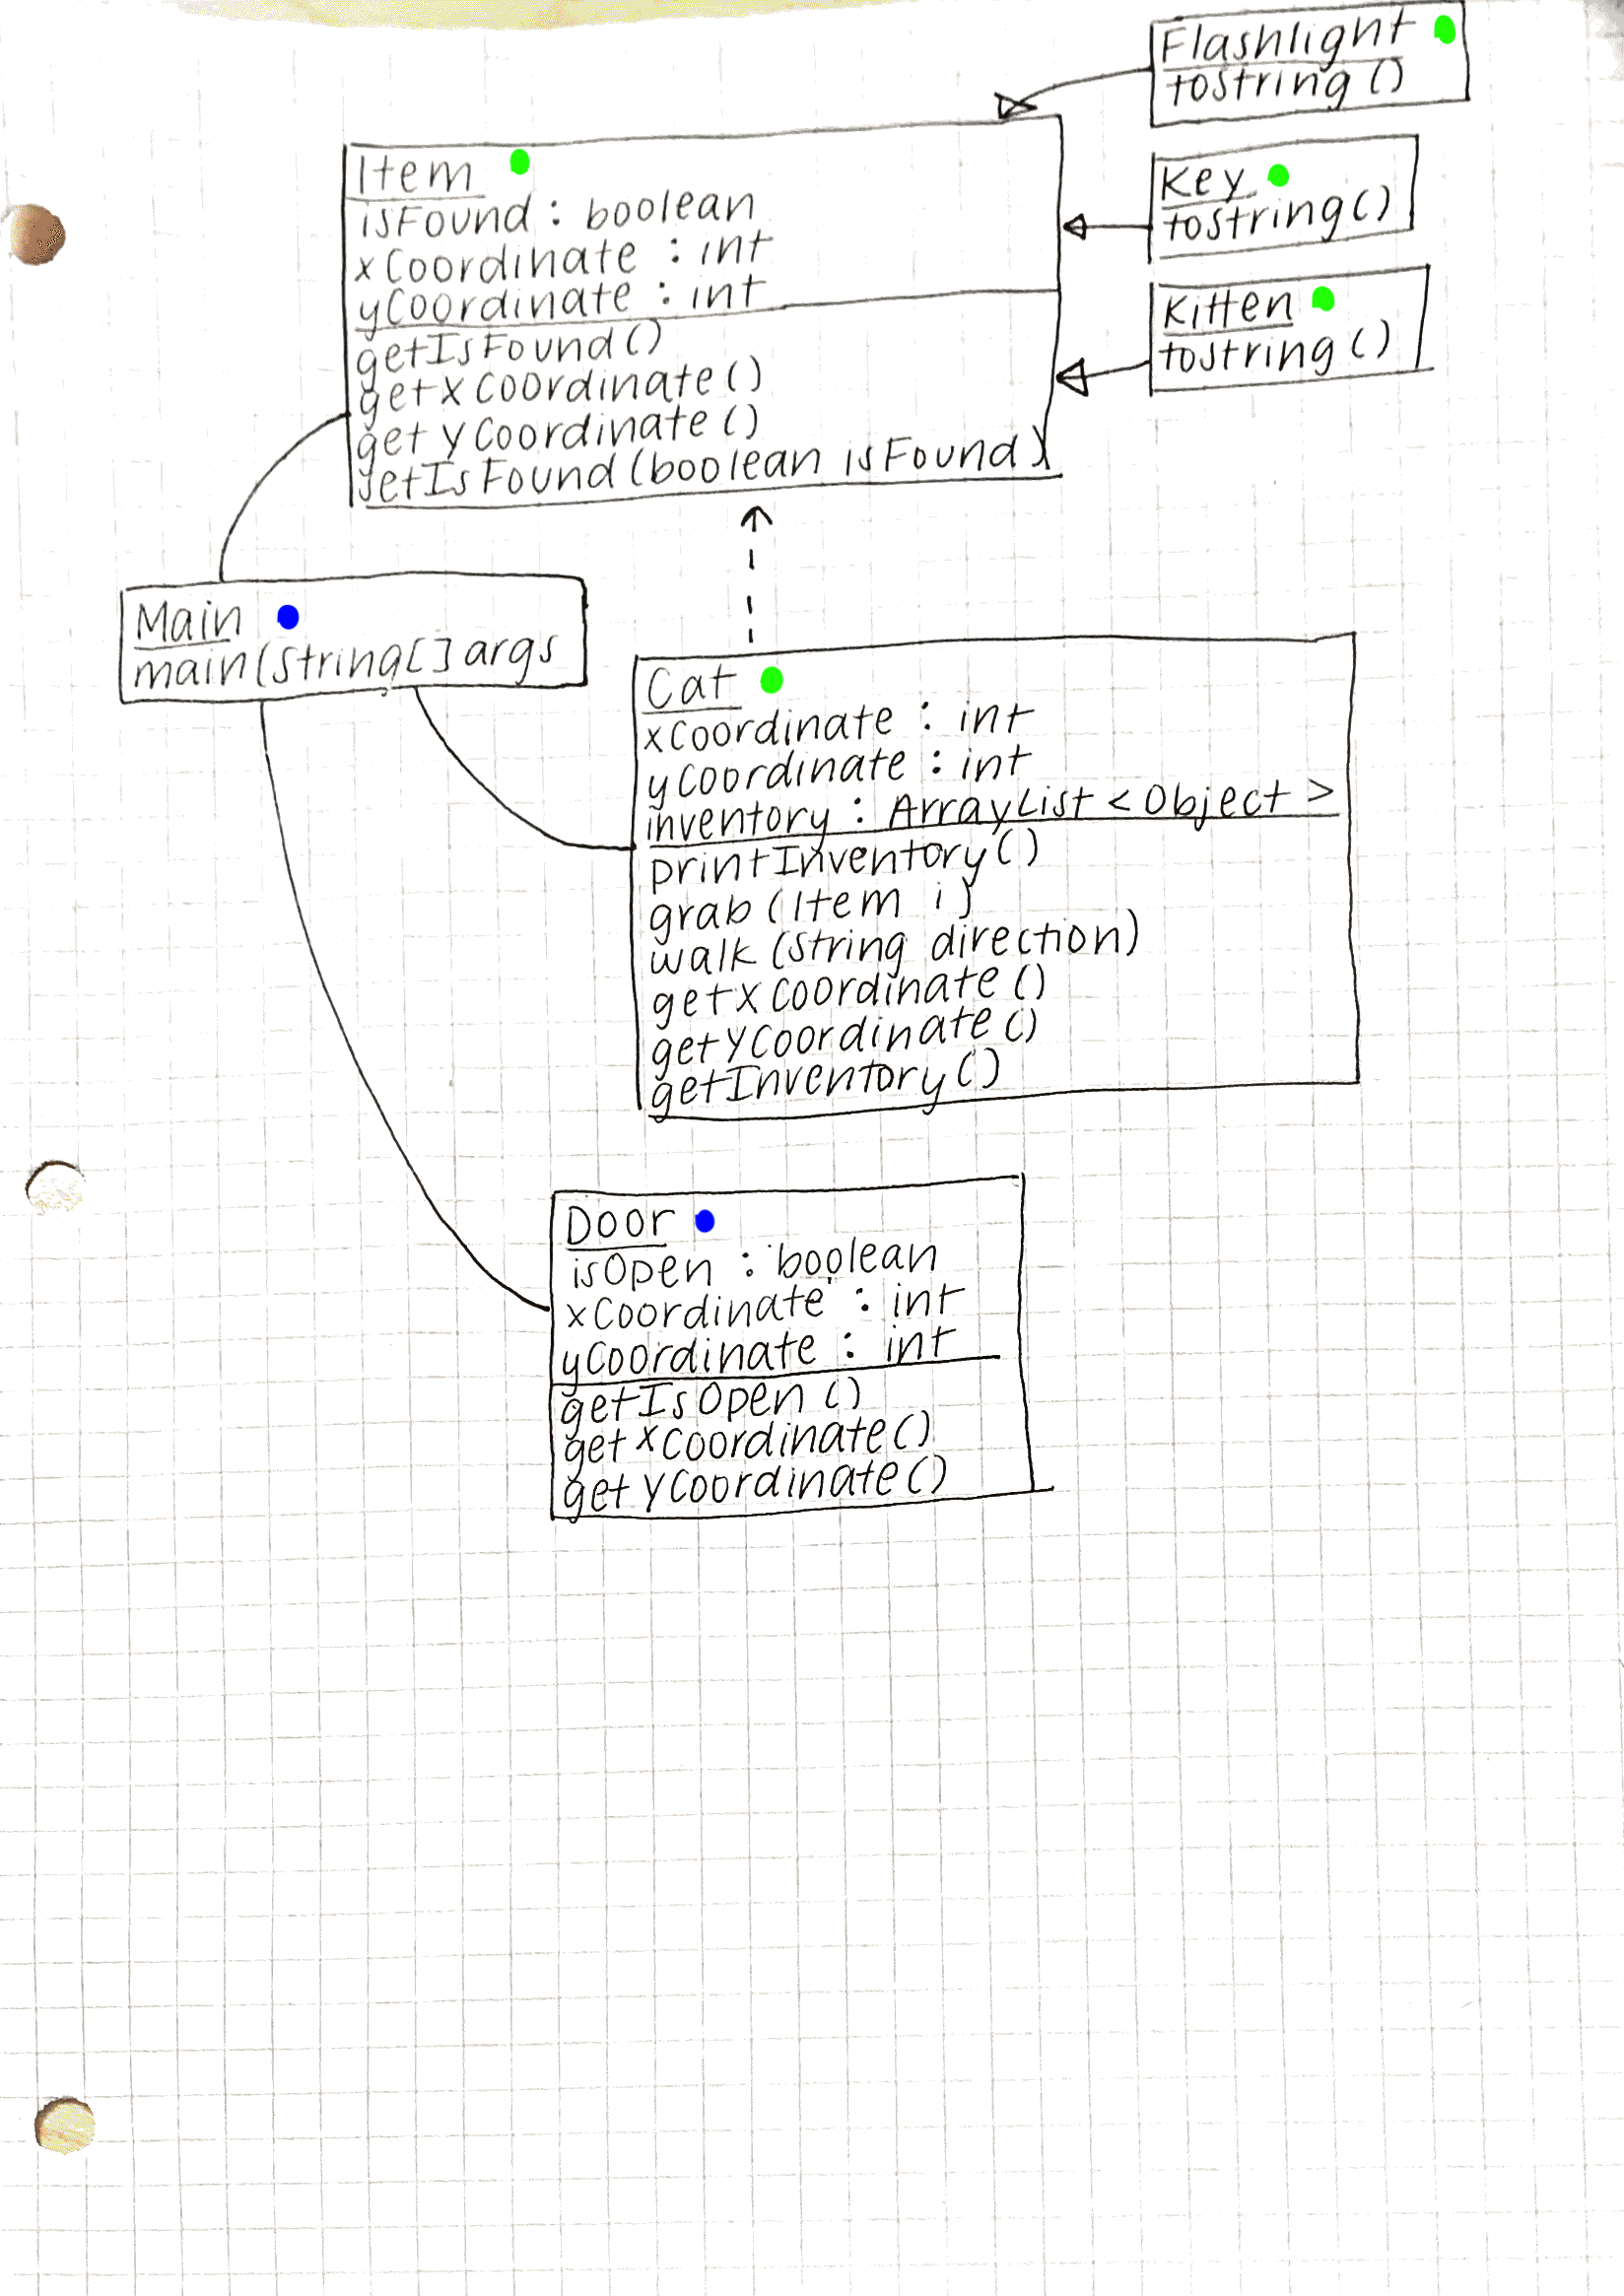 Flashlight
toString()
Item
isFound : boolean
xCoordinate : int
yCoordinate : int
getIsFound()
getXCoordinate()
getYCoordinate()
setIsFound(boolean isFound)
Key
toString()
Kitten
toString()
Main
main(String[] args
Cat
xCoordinate : int
yCoordinate : int
inventory : ArrayList <Object>
printInventory()
grab(Item i)
walk(String direction)
getXCoordinate()
getYCoordinate()
getInventory()
Door
isOpen : boolean
xCoordinate : int
yCoordinate : int
getIsOpen()
getXCoordinate()
getYCoordinate()